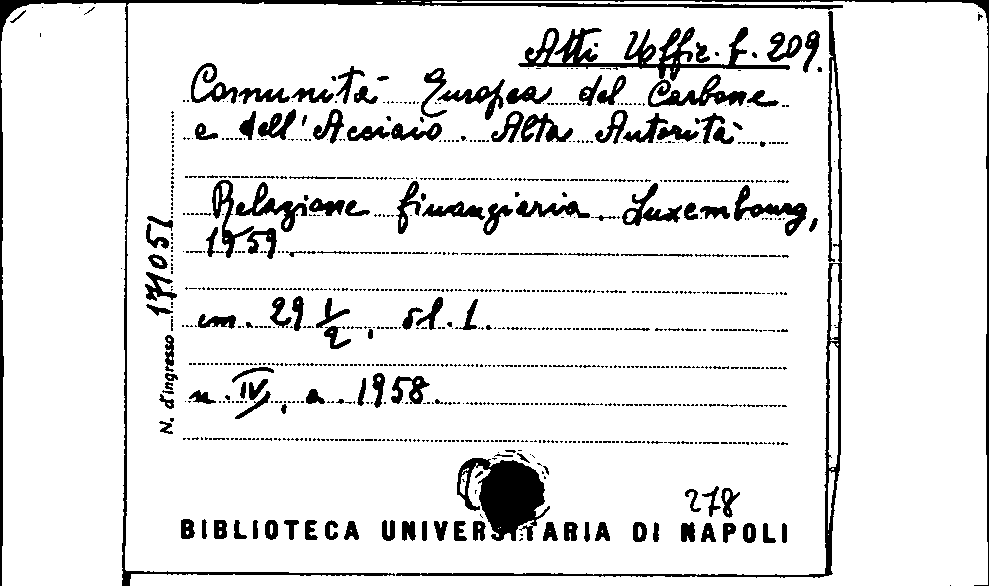 Atti Uffic. f. 209.
Comunità Europea del Carbone
e dell'Acciaio. Alta Autorità.
Relazione finanziaria. Luxembourg,
1959.
cm. 29 1/2,
n. IV, a. 1958.
N. d'ingresso 171051
278
BIBLIOTECA UNIVERSITARIA DI NAPOLI